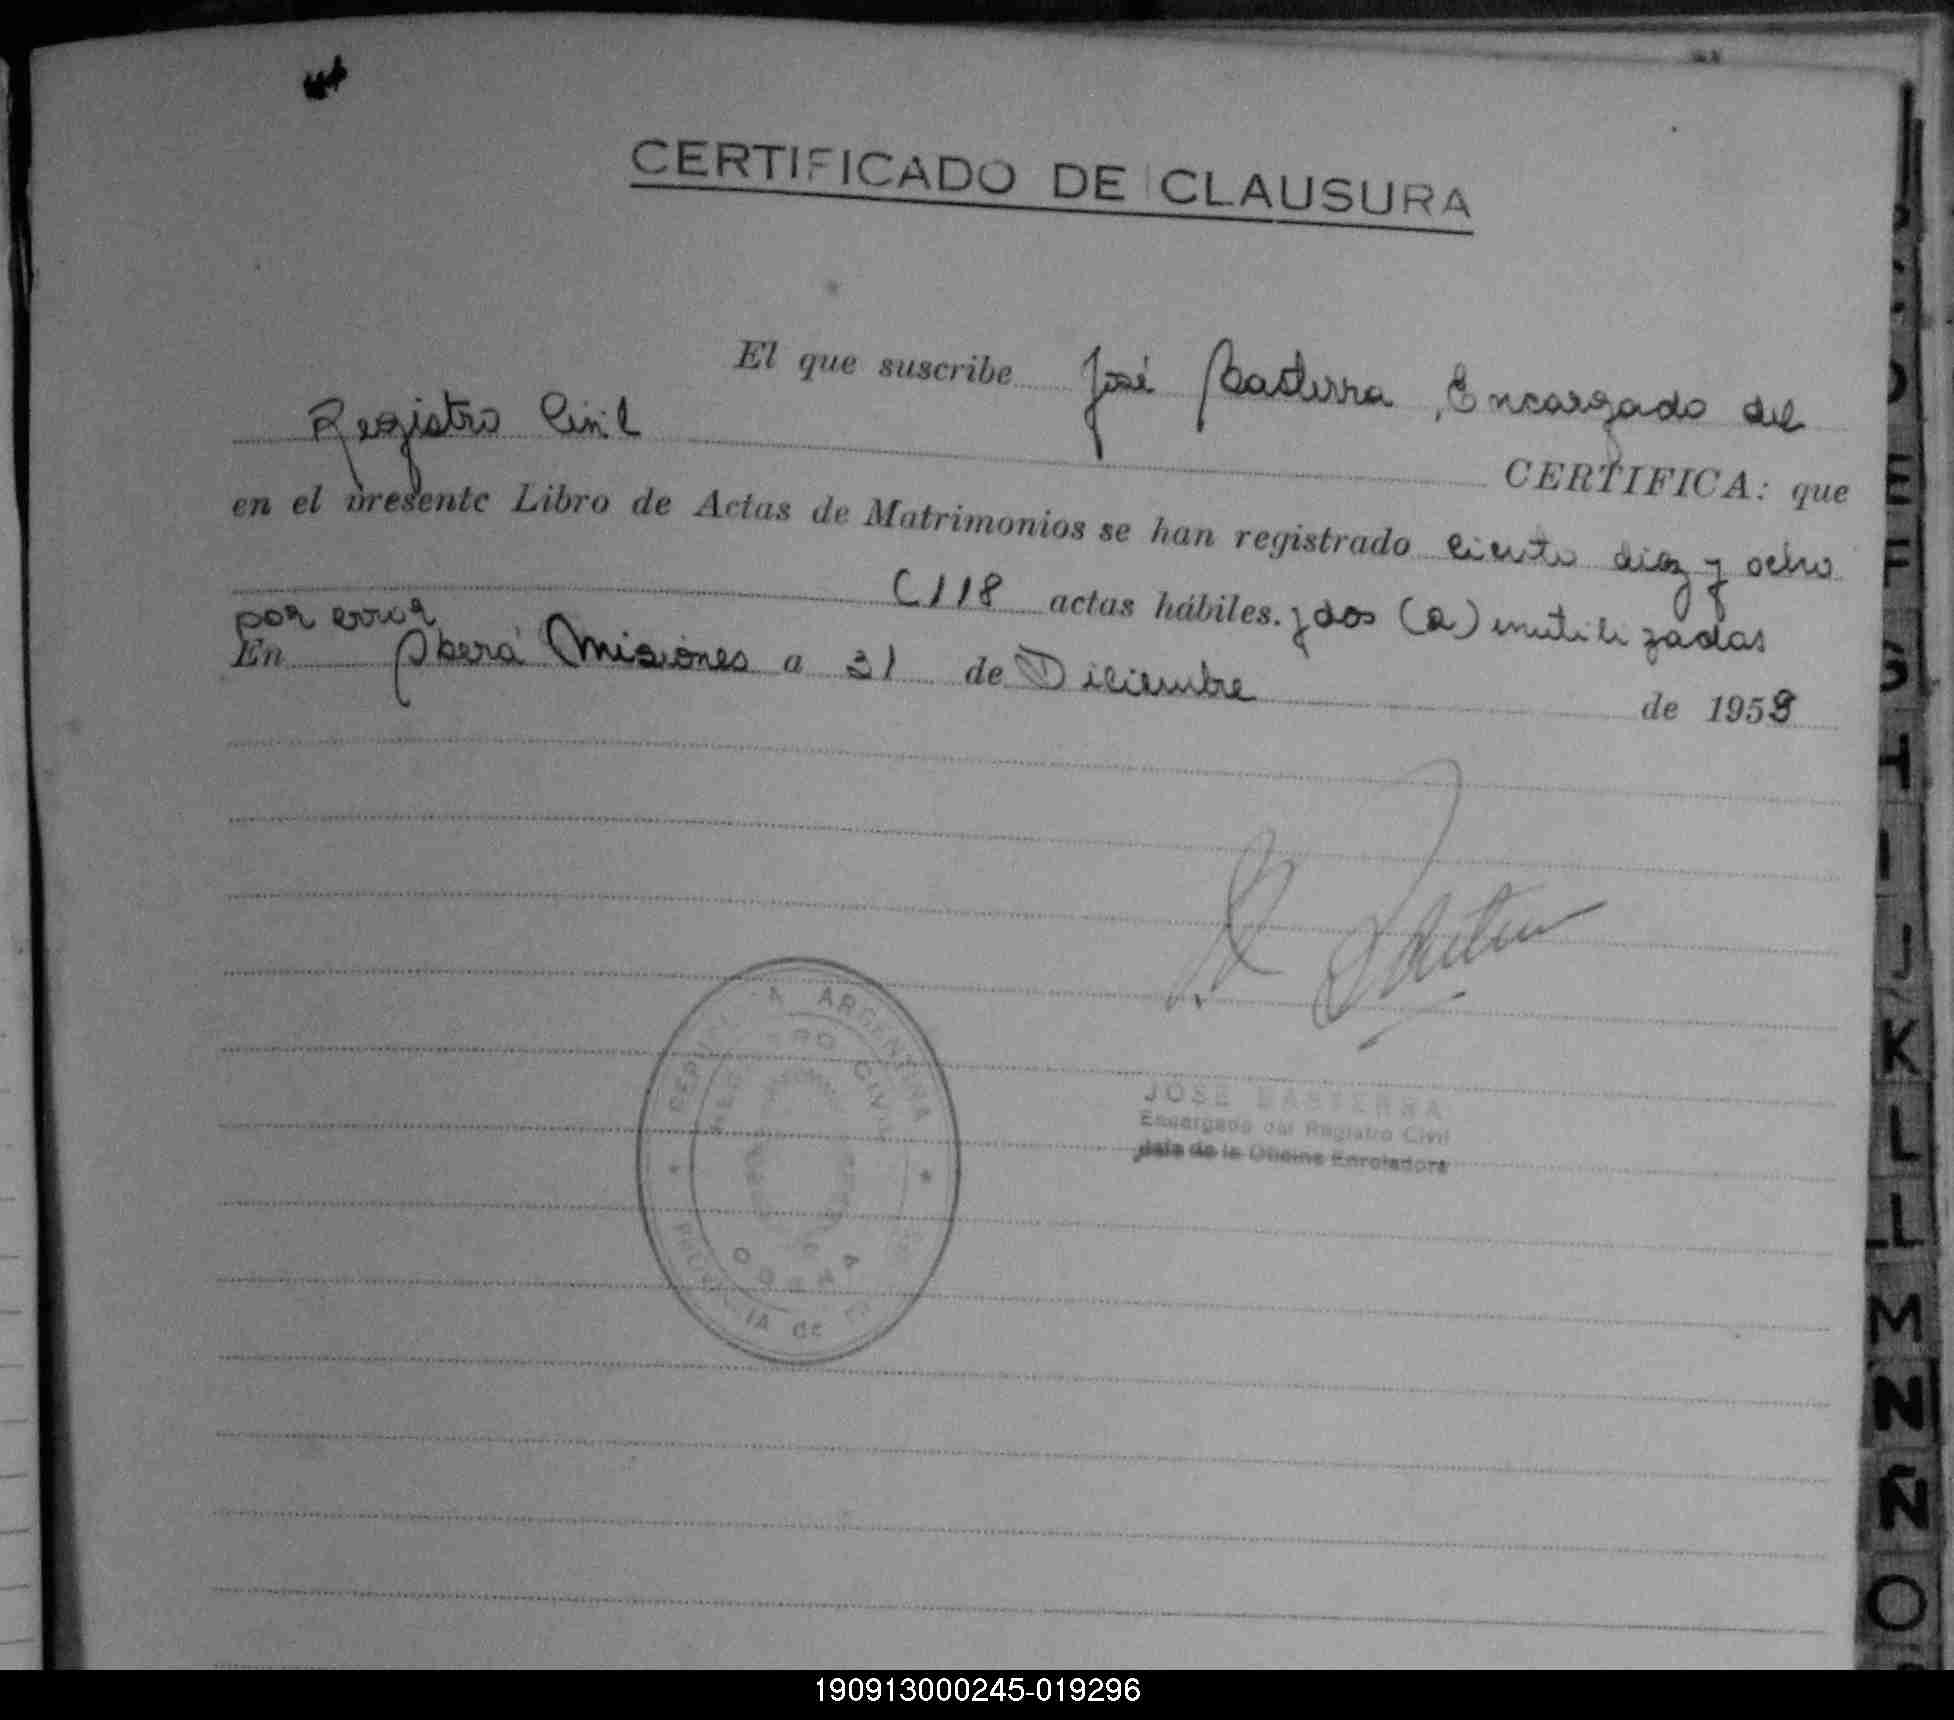 CERTIFICADO DE CLAUSURA
El que suscribe José Basterra, Encargado del
Registro Civil CERTIFICA: que
en el presente Libro de Actas de Matrimonios se han registrado ciento diez y ocho
(118 actas hábiles. y dos (2) inutilizadas
por error
En Oberá Misiones a 31 de Diciembre de 1958
REPUBLICA ARGENTINA
REGISTRO CIVIL
OBERA
PROVINCIA DE
JOSE BASTERRA
Encargado del Registro Civil
Jefe de la Oficina Enroladora
E
F
G
H
I
J
K
L
LL
M
N
Ñ
O
190913000245-019296